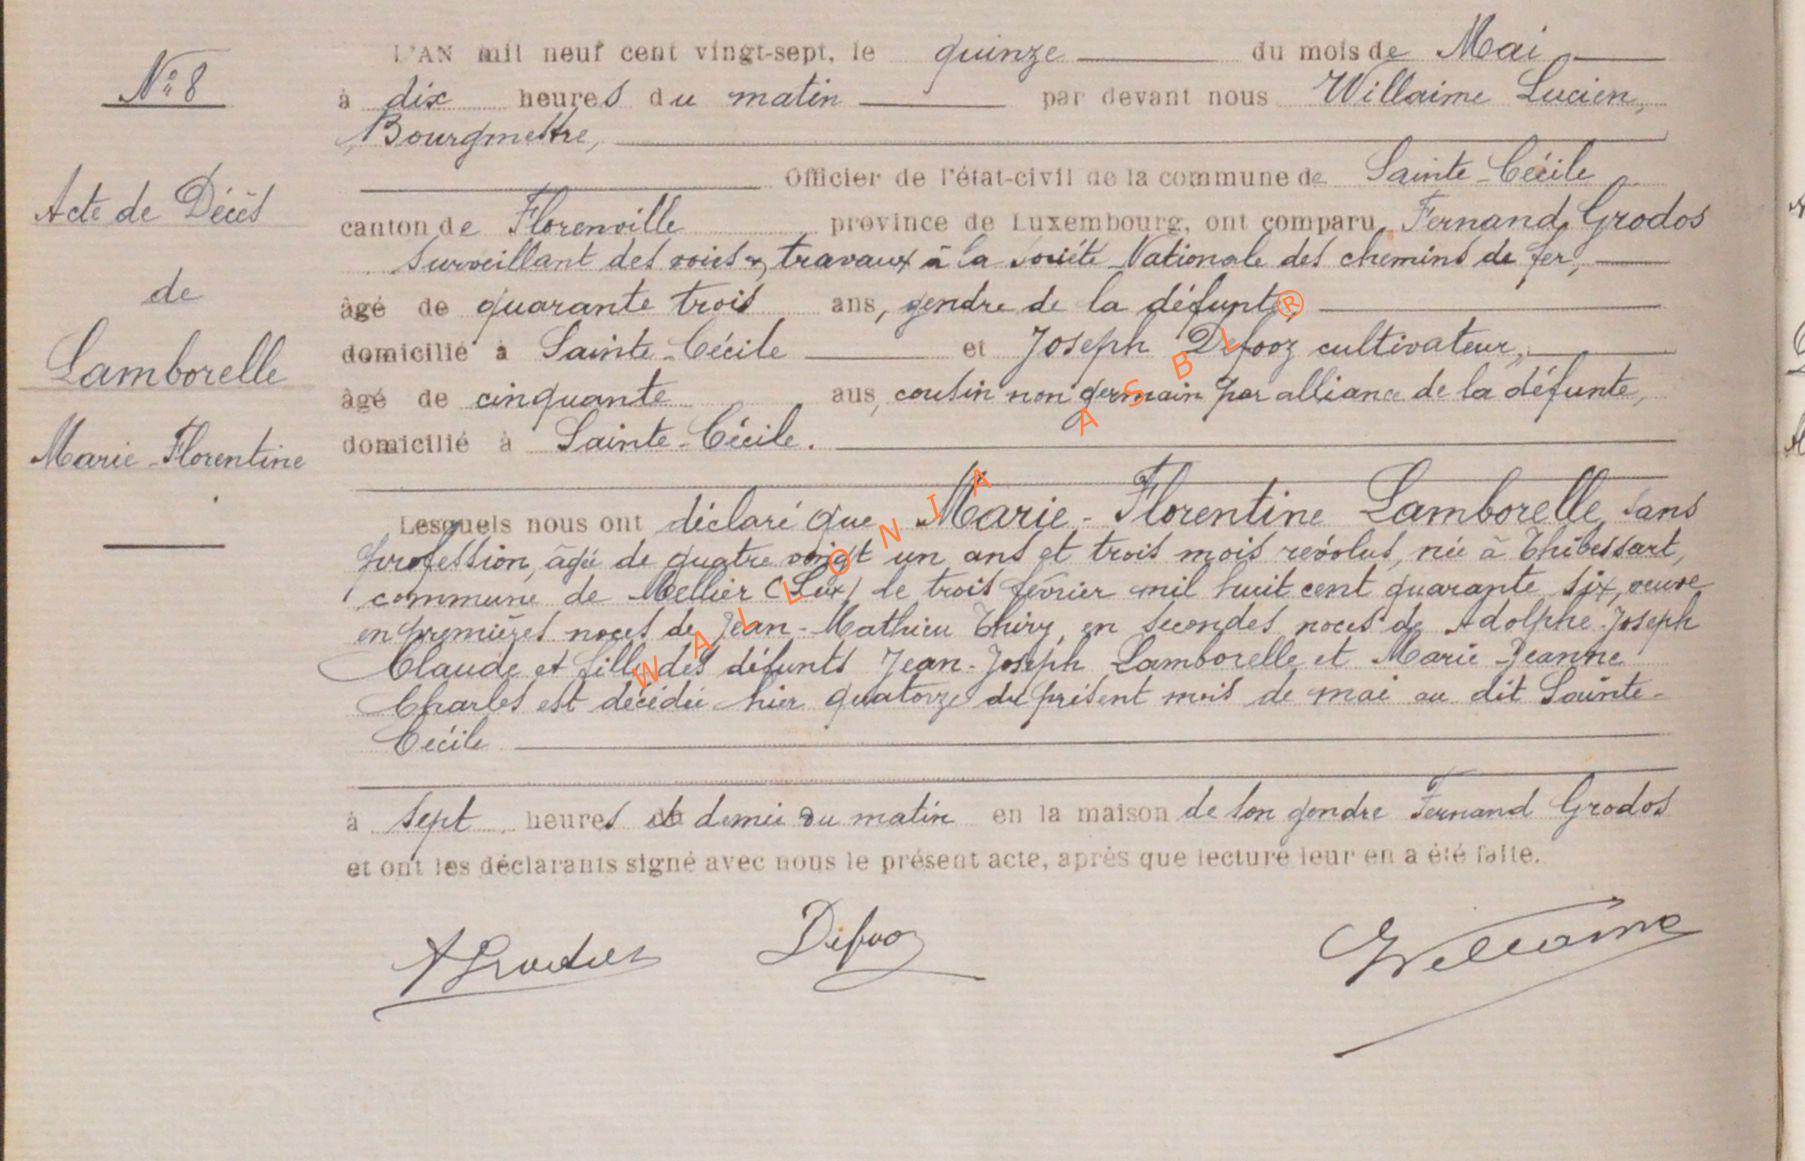 N° 8
Acte de Décès
de
Lamborelle
Marie-Florentine
L'AN mil neuf cent vingt-sept, le quinze du mois de Mai
à dix heures du matin par devant nous Willaime Lucien,
Bourgmestre,
Officier de l'état-civil de la commune de Sainte-Cécile
canton de Florenville province de Luxembourg, ont comparu Fernand Grodos
surveillant des voies & travaux à la Société Nationale des chemins de fer,
âgé de quarante trois ans, gendre de la défunte
domicilié à Sainte-Cécile et Joseph Defooz cultivateur,
âgé de cinquante ans, cousin non germain par alliance de la défunte,
domicilié à Sainte-Cécile.
Lesquels nous ont déclaré que Marie-Florentine Lamborelle, sans
profession, âgée de quatre vingt un ans et trois mois révolus, née à Thibessart,
commune de Mellier (Lux) le trois février mil huit cent quarante six, veuve
en premières noces de Jean-Mathieu Thiry, en secondes noces de Adolphe-Joseph
Claude et fille des défunts Jean-Joseph Lamborelle et Marie-Jeanne
Charles est décédée hier quatorze du présent mois de mai au dit Sainte-
Cécile
à sept heures et demie du matin en la maison de son gendre Fernand Grodos
et ont les déclarants signé avec nous le présent acte, après que lecture leur en a été faite.
Defooz Willaime
WALLONIA ASBL ®